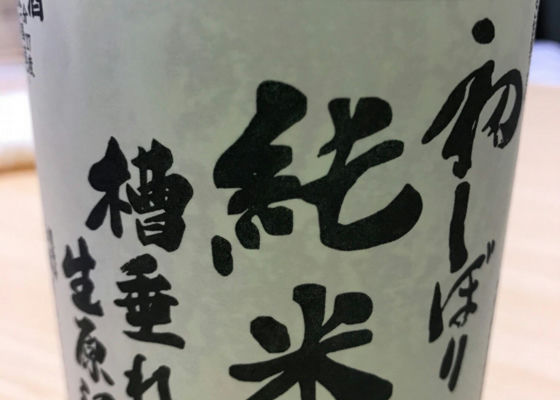 初しぼり
純米
槽垂れ
生原
酒